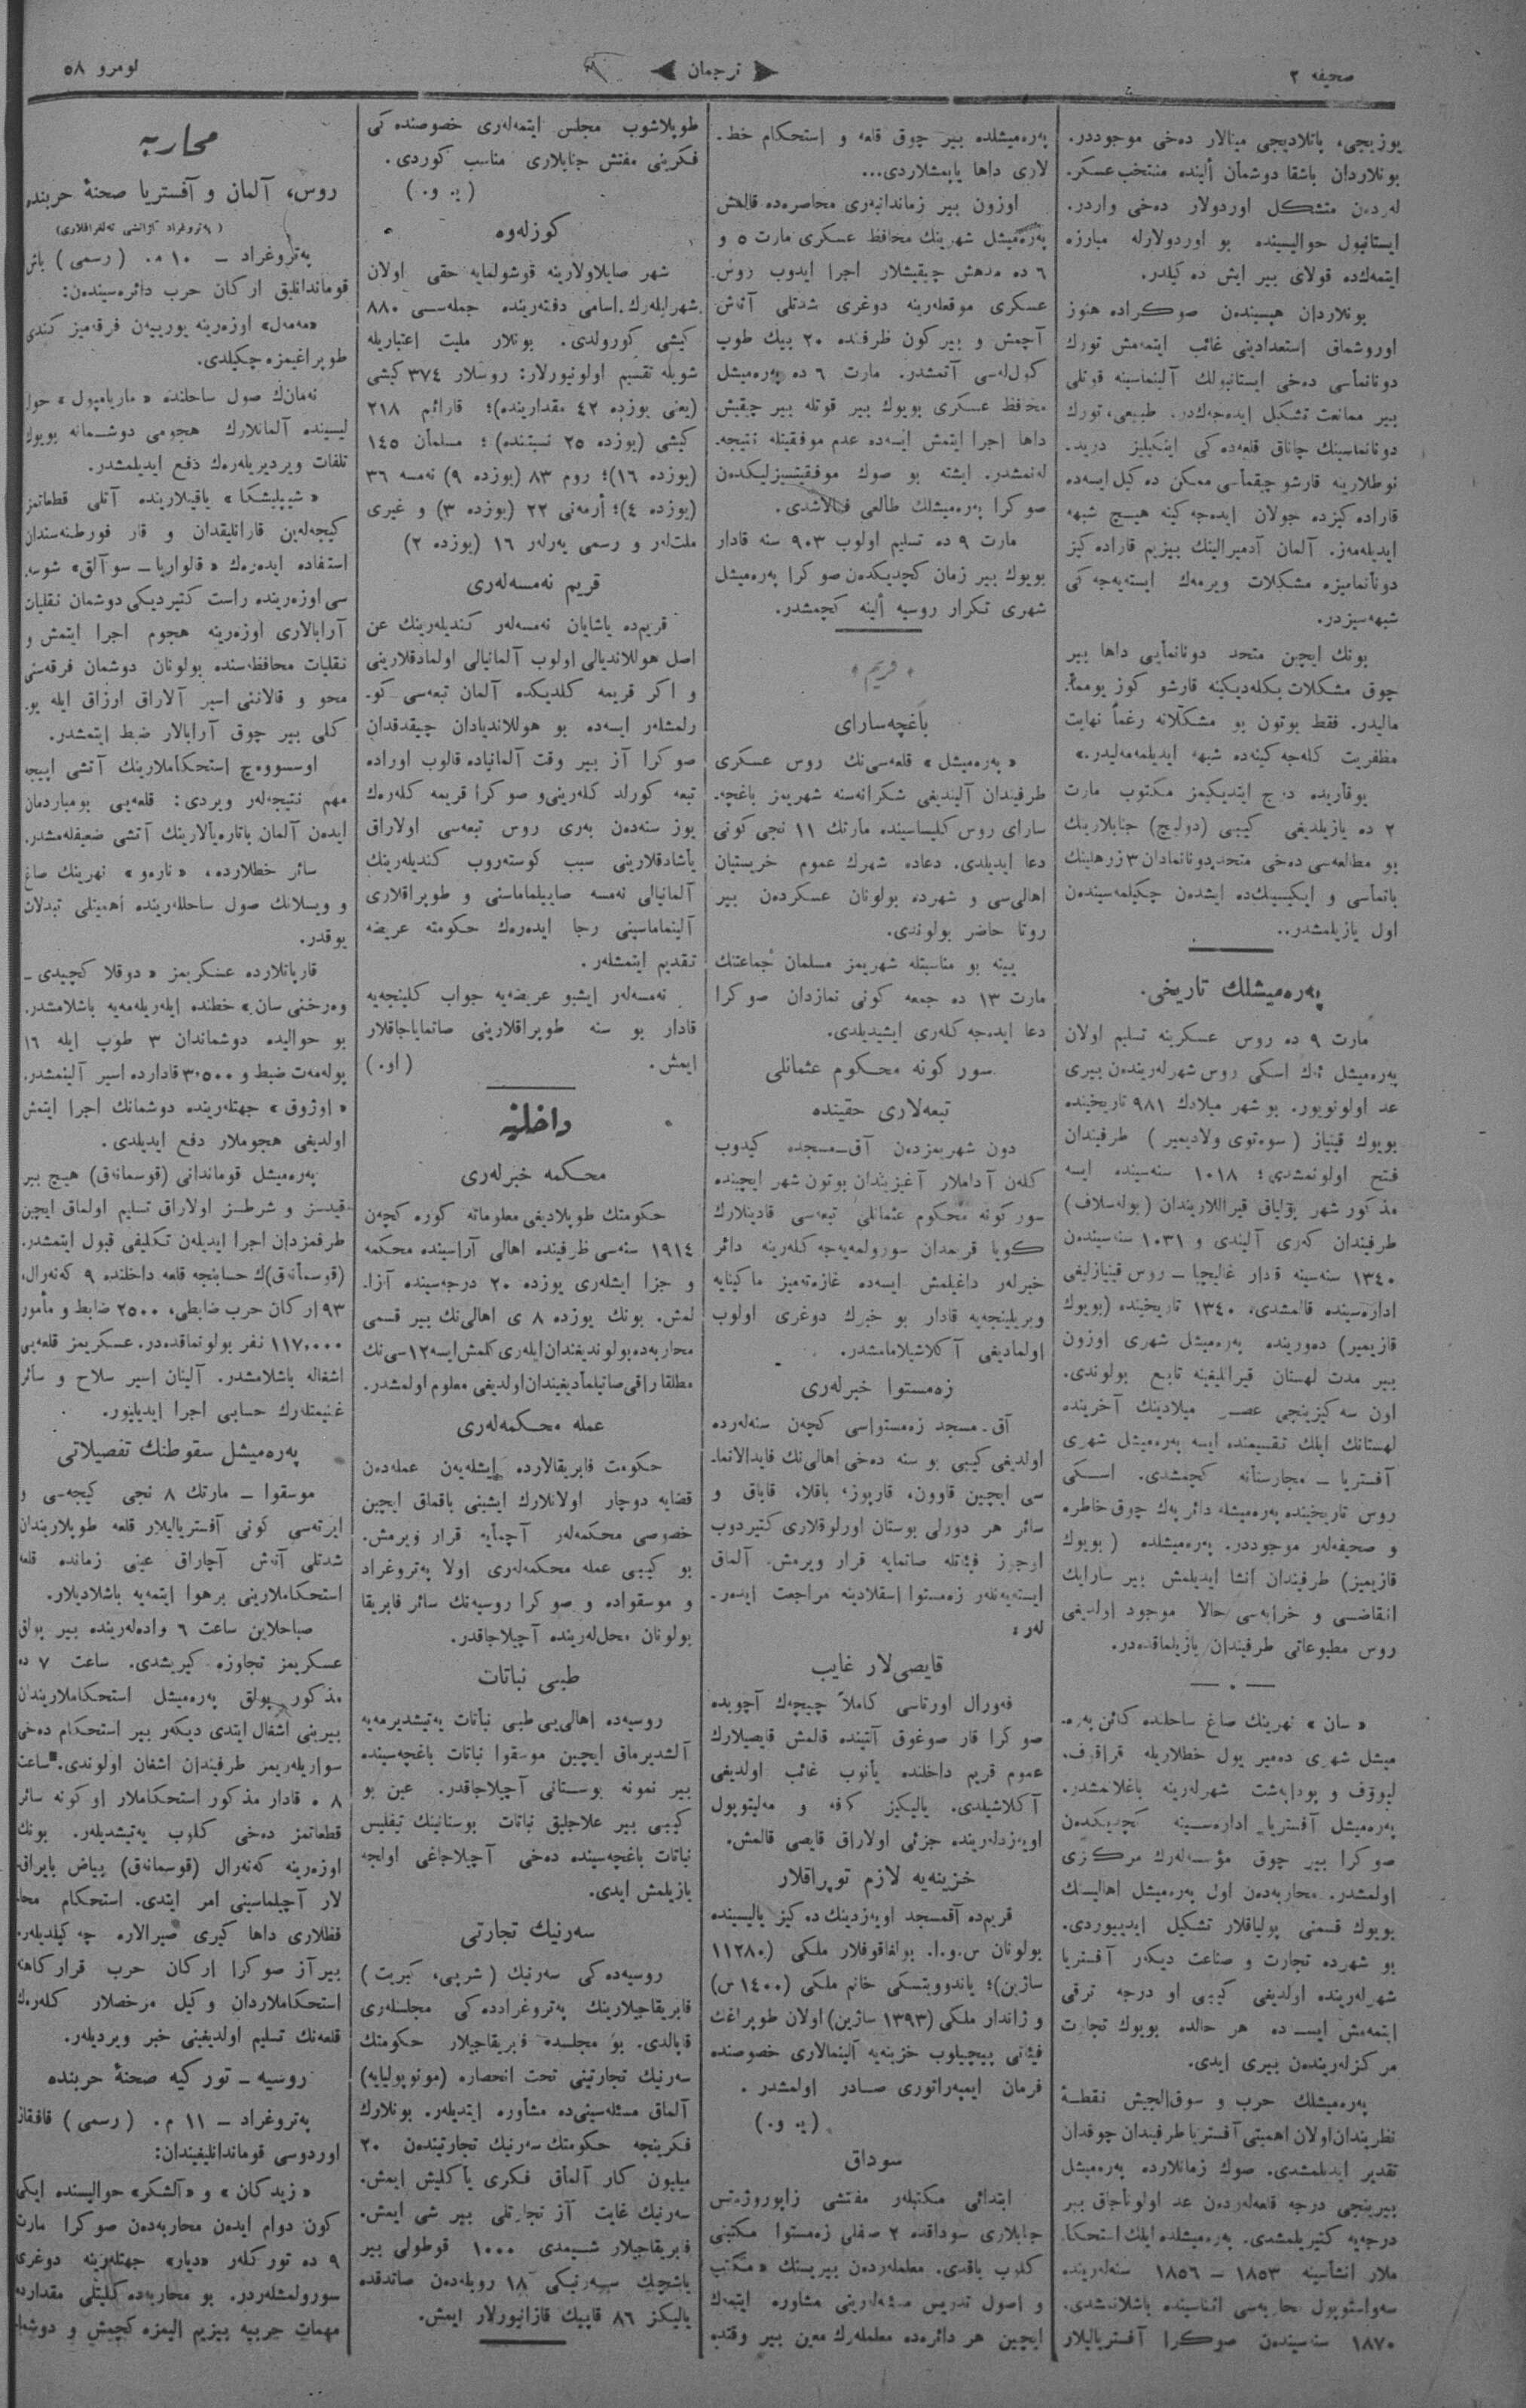 صحیفه ٢
ترجمان
نومرو ٥٨
یوزیجی، پاتلادیجی مینالار دەخی موجوددر.
بونلاردان باشقا دوشمان ألینده منتخب عسکر۔
لەردەن متشکل اوردولار دەخی واردر.
ایستانبول حوالیسینده بو اوردولارله مبارزه
ایتمەکده قولای بیر ایش دەکیلدر.
بونلاردان هپسیندەن صوکراده هنوز
اوروشماق استعدادینی غائب ایتمەمش تورك
دونانماسی دەخی ایستانبولك آلینماسینه قوتلی
بیر ممانعت تشکیل ایدەجەکدر. طبیعی، تورك
دونانماسینك چاناق قلعەدەکی اینکیلیز درید۔
نوطلارینه قارشو چیقماسی ممکن دەکیل ایسەده
قارادەکیزده جولان ایدەجەکینه هیچ شبهه
ایدیلەمەز. آلمان آدمیرالینك بیزیم قارادەکیز
دونانمامیزه مشکلات ویرمەك ایستەیەجەکی
شبهەسیزدر.
بونك ایچین متحد دونانمایی داها بیر
چوق مشکلات بکلەدیکینه قارشو کوز یومما۔
مالیدر. فقط بوتون بو مشکلاته رغماً نهایت
مظفریت کلەجەکینەده شبهه ایدیلمەمەلیدر.»
یوقاریده درج ایتدیکیمز مکتوب مارت
٢ ده یازیلدیغی کیبی (دولیچ) جنابلارینك
بو مطالعەسی دەخی متحد دونانمادان ٣ زرهلینك
باتماسی و ایکیسینك ده ایشدەن چکیلمەسیندەن
اول یازیلمشدر..
پەرەمیشلك تاریخی.
مارت ٩ ده روس عسکرینه تسلیم اولان
پەرەمیشل أڭ اسکی روس شهرلەریندەن بیری
عد اولونویور. بو شهر میلادك ٩٨١ تاریخینده
بویوك قنیاز (سوەتوی ولادیمیر) طرفیندان
فتح اولونمشدی؛ ١٠١٨ سنەسینده ایسه
مذکور شهر پولیاق قیراللاریندان (بولەسلاف)
طرفیندان کەری آلیندی و ١٠٣١ سنەسیندەن
١٣٤٠ سنەسینه قادار غالیچیا ـ روس قنیازلیغی
ادارەسینده قالمشدی. ١٣٤٠ تاریخینده (بویوك
قازیمیر) دەورینده پەرەمیشل شهری اوزون
بیر مدت لهستان قیرالیغینه تابع بولوندی.
اون سەکیزینجی عصر میلادینك آخرینده
لهستانك ایلك تقسیمنده ایسه پەرەمیشل شهری
آفستریا ـ مجارستانه کچمشدی. اسکی
روس تاریخینده پەرەمیشله دائر پەك چوق خاطره
و صحیفەلەر موجوددر. پەرەمیشلده (بویوك
قازیمیر) طرفیندان انشا ایدیلمش بیر سارایك
انقاضی و خرابەسی حالا موجود اولدیغی
روس مطبوعاتی طرفیندان یازیلماقدەدر.
« سان » نهرینك صاغ ساحلنده کائن پەرە۔
میشل شهری دەمیر یول خطلاریله قراقوف،
لیووف و بوداپەشت شهرلەرینه باغلانمشدر.
پەرەمیشل آفستریا ادارەسینه کچدیکدەن
صوکرا بیر چوق مؤسسەلەرك مرکزی
اولمشدر. محاربەدەن اول پەرەمیشل اهالیسنك
بویوك قسمنی پولیاقلار تشکیل ایدییوردی.
بو شهرده تجارت و صناعت دیکەر آفستریا
شهرلەرینده اولدیغی کیبی او درجه ترقی
ایتمەمش ایسەده هر حالده بویوك تجارت
مرکزلەریندەن بیری ایدی.
پەرەمیشلك حرب و سوق‌الجیش نقطۀ
نظریندان اولان اهمیتی آفستریا طرفیندان چوقدان
تقدیر ایدیلمشدی. صوك زمانلارده پەرەمیشل
بیرینجی درجه قلعەلەردەن عد اولوناجاق بیر
درجەیه کتیریلمشدی. پەرەمیشلده ایلك استحکا۔
ملار انشأسینه ١٨٥٣ ـ ١٨٥٦ سنەلەرینده
سەواستوپول محاربەسی اثناسینده باشلانمشدی.
١٨٧٠ سنەسیندەن صوکرا آفستریالیلار
پەرەمیشلده بیر چوق قلعه و استحکام خط۔
لاری داها یاپمشلاردی...
اوزون بیر زماندانبەری محاصرەده قالمش
پەرەمیشل شهرینك محافظ عسکری مارت ٥ و
٦ ده مدهش چیقیشلار اجرا ایدوب روس
عسکری موقعلەرینه دوغری شدتلی آتەش
آچمش و بیر کون ظرفنده ٢٠ بیك طوپ
کوللەسی آتمشدر. مارت ٦ ده پەرەمیشل
محافظ عسکری بویوك بیر قوتله بیر چیقیش
داها اجرا ایتمش ایسەده عدم موفقیتله نتیجه۔
لەنمشدر. ایشته بو صوك موفقیتسیزلیکدەن
صوکرا پەرەمیشلك طالعی قالاشدی.
مارت ٩ ده تسلیم اولوب ٩٠٣ سنه قادار
بویوك بیر زمان کچدیکدەن صوکرا پەرەمیشل
شهری تکرار روسیه ألینه کچمشدر.
قریم
باغچەسارای
« پەرەمیشل » قلعەسی‌نك روس عسکری
طرفیندان آلیندیغی شکرانەسنه شهریمز باغچه۔
سارای روس کلیساسینده مارتك ١١ نجی کونی
دعا ایدیلدی. دعاده شهرك عموم خریستیان
اهالی‌سی و شهرده بولونان عسکردەن بیر
روتا حاضر بولوندی.
یینه بو مناسبتله شهریمز مسلمان جماعتنك
مارت ١٣ ده جمعه کونی نمازدان صوکرا
دعا ایدەجەکلەری ایشیدیلدی.
سورکونه محکوم عثمانلی
تبعەلاری حقینده
دون شهریمزدەن آق‌ـمسجده کیدوب
کلەن آداملار آغیزیندان بوتون شهر ایچینده
سورکونه محکوم عثمانلی تبعەسی قادینلارك
کویا قریمدان سورولمەیەجەکلەرینه دائر
خبرلەر داغیلمش ایسەده غازەتەمیز ماکینایه
ویریلینجەیه قادار بو خبرك دوغری اولوب
اولمادیغی آکلاشیلامامشدر.
زەمستوا خبرلەری
آق‌ـمسجد زەمستواسی کچەن سنەلەرده
اولدیغی کیبی بو سنه دەخی اهالی‌نك فایدالانما۔
سی ایچین قاوون، قارپوز، باقلا، قاباق و
سائر هر دورلی بوستان اورلوقلاری کتیردوب
اوجوز فیئاتله صاتمایه قرار ویرمش. آلماق
ایستەیەنلەر زەمستوا اسقلادینه مراجعت ایدەر۔
لەر.
قایصی‌لار غایب
فەورال اورتاسی کاملاً چیچەك آچوبده
صوکرا قار صوغوق آلتینده قالمش قایصیلارك
عموم قریم داخلنده یانوب غائب اولدیغی
آکلاشیلدی. یالیکیز کفه و مەلیتوپول
اویەزدلەرینده جزئی اولاراق قایصی قالمش.
خزینەیه لازم توپراقلار
قریم‌ده آقمسجد اویەزدینك دەکیز یالیسینده
بولونان س.و.ا. بولفاقوفلار ملکی (١١٢٨٠
ساژین)؛ یاندوویتسکی خانم ملکی (١٤٠٠ س)
و ژاندار ملکی (١٣٩٣ ساژین) اولان طوپراغك
فیئاتی بیچیلوب خزینەیه آلینمالاری خصوصنده
فرمان ایمپەراتوری صادر اولمشدر.
(ی. و.)
سوداق
ابتدائی مکتبلەر مفتشی زاپوروژەتس
جنابلاری سوداقده ٢ صنفلی زەمستوا مکتبنی
کلوب باقدی. معلملەردەن بیریسنك «مکتب
و اصول تدریس مسئلەلەرینی مشاوره ایتمەك
ایچین هر دائرەده معلملەرك معین بیر وقتده
طوپلاشوب مجلس ایتمەلەری خصوصندەکی
فکرینی مفتش جنابلاری مناسب کوردی.
(ی. و.)
کوزلەوه
شهر صایلاولارینه قوشولمایه حقی اولان
شهرلیلەرك اسامی دفتەرینده جملەسی ٨٨٠
کیشی کورولدی. بونلار ملیت اعتباریله
شویله تقسیم اولونیورلار: روسلار ٣٧٤ کیشی
(یعنی یوزده ٤٢ مقدارینده)؛ قارائم ٢١٨
کیشی (یوزده ٢٥ نسبتنده)؛ مسلمان ١٤٥
(یوزده ١٦)؛ روم ٨٣ (یوزده ٩) نەمسه ٣٦
(یوزده ٤)؛ أرمەنی ٢٢ (یوزده ٣) و غیری
ملتلەر و رسمی یەرلەر ١٦ (یوزده ٢)
قریم نەمسەلەری
قریم‌ده یاشایان نەمسەلەر کندیلەرینك عن
اصل هوللاندیالی اولوب آلمانیالی اولمادقلارینی
و اکر قریمه کلدیکده آلمان تبعەسی کو۔
رلمشلەر ایسەده بو هوللاندیادان چیقدقدان
صوکرا آز بیر وقت آلمانیاده قالوب اوراده
تبعه کورلد کلەرینی و صوکرا قریمه کلەرەك
یوز سنەدەن بەری روس تبعەسی اولاراق
یاشادقلارینی سبب کوستەروب کندیلەرینك
آلمانیالی نەمسه صاییلماماسنی و طوپراقلاری
آلینماماسینی رجا ایدەرەك حکومته عریضه
تقدیم ایتمشلەر.
نەمسەلەر ایشبو عریضەیه جواب کلینجەیه
قادار بو سنه طوپراقلارینی صاتمایاجاقلار
ایمش. (او.)
داخلیه
محکمه خبرلەری
حکومتك طوپلادیغی معلوماته کوره کچەن
١٩١٤ سنەسی ظرفینده اهالی آراسینده محکمه
و جزا ایشلەری یوزده ٢٠ درجەسینده آزا۔
لمش. بونك یوزده ٨ ی اهالی‌نك بیر قسمی
محاربەده بولوندیغندان ایلەری کلمش ایسه ١٢ سی‌نك
مطلقا راقی صاتیلمادیغیندان اولدیغی معلوم اولمشدر.
عمله محکمەلەری
حکومت فابریقالارده ایشلەیەن عملەدەن
قضایه دوچار اولانلارك ایشینی باقماق ایچین
خصوصی محکمەلەر آچمایه قرار ویرمش.
بو کیبی عمله محکمەلەری اولا پەتروغراد
و موسقواده و صوکرا روسیەنك سائر فابریقا
بولونان محللەرینده آچیلاجاقدر.
طبی نباتات
روسیەده اهالی‌یی طبی نباتات یەتیشدیرمەیه
آلشدیرماق ایچین موسقوا نباتات باغچەسینده
بیر نمونه بوستانی آچیلاجاقدر. عین بو
کیبی بیر علاجلیق نباتات بوستانینك تیفلیس
نباتات باغچەسینده دەخی آچیلاجاغی اولجه
یازیلمش ایدی.
سەرنیك تجارتی
روسیەدەکی سەرنیك (شرپی، کبریت)
فابریقاجیلارینك پەتروغراددەکی مجلسلەری
قاپالدی. بو مجلسده فابریقاجیلار حکومتك
سەرنیك تجارتینی تحت انحصاره (مونوپولیایه)
آلماق مسئلەسینی‌ده مشاوره ایتدیلەر. بونلارك
فکرینجه حکومتك سەرنیك تجارتیندەن ٢٠
میلیون کار آلماق فکری یاکلیش ایمش.
سەرنیك غایت آز تجارتلی بیر شی ایمش.
فابریقاجیلار شیمدی ١٠٠٠ قوطولی بیر
یاشچك سەرنیکی ١٨ روبلەدەن صاتدقده
یالیکز ٨٦ قاپیك قازانیورلار ایمش.
محاربه
روس، آلمان و آفستریا صحنۀ حربنده
(پەتروغراد آژانسی تەلغرافلاری)
پەتروغراد ـ ١٠ م. (رسمی) باش
قومانداانلیق ارکان حرب دائرەسیندەن:
«مەمەل» اوزەرینه یورییەن فرقەمیز کندی
طوپراغیمزه چکیلدی.
نەمانك صول ساحلنده «ماریامپول» حوا۔
لیسینده آلمانلارك هجومی دوشمانه بویوك
تلفات ویردیریلەرەك دفع ایدیلمشدر.
« شیپلیشکا » یاقینلارینده آتلی قطعاتمز
کیجەلەین قارانلیقدان و قار فورطنەسندان
استفاده ایدەرەك « قالواریا ـ سوآلق» شوسه۔
سی اوزەرینده راست کتیردیکی دوشمان نقلیات
آرابالاری اوزەرینه هجوم اجرا ایتمش و
نقلیات محافظەسنده بولونان دوشمان فرقەسنی
محو و قالاننی اسیر آلاراق ارزاق ایله یو۔
کلی بیر چوق آرابالار ضبط ایتمشدر.
اوسسووەچ استحکاملارینك آتشی اییجه
مهم نتیجەلەر ویردی: قلعەیی بومباردمان
ایدەن آلمان باتارەیالارینك آتشی ضعیفلەمشدر.
سائر خطلارده، « نارەو » نهرینك صاغ
و ویسلانك صول ساحللەرینده أهمیتلی تبدلات
یوقدر.
قارپاتلارده عسکریمز « دوقلا کچیدی ـ
وەرخنی سان » خطنده ایلەریلەمەیه باشلامشدر.
بو حوالیده دوشماندان ٣ طوپ ایله ١٦
پولەمەت ضبط و ٣٬٥٠٠ قادارده اسیر آلینمشدر.
« اوژوق » جهتلەرینده دوشمانك اجرا ایتمش
اولدیغی هجوملار دفع ایدیلدی.
پەرەمیشل قوماندانی (قوسمانەق) هیچ بیر
قیدسز و شرطسز اولاراق تسلیم اولماق ایچین
طرفمزدان اجرا ایدیلەن تکلیفی قبول ایتمشدر.
(قوسمانەق)ك حسابنجه قلعه داخلنده ٩ کەنەرال،
٩٣ ارکان حرب ضابطی، ٢٥٠٠ ضابط و مأمور
١١٧٬٠٠٠ نفر بولونماقدەدر. عسکریمز قلعەیی
اشغاله باشلامشدر. آلینان اسیر سلاح و سائر
غنیمتلەرك حسابی اجرا ایدیلیور.
پەرەمیشل سقوطنك تفصیلاتی
موسقوا ـ مارتك ٨ نجی کیجەسی و
ایرتەسی کونی آفستریالیلار قلعه طوپلاریندان
شدتلی آتەش آچاراق عینی زمانده قلعه
استحکاملارینی برهوا ایتمەیه باشلادیلار.
صباحلاین ساعت ٦ رادەلەرینده بیر پولق
عسکریمز تجاوزه کیریشدی. ساعت ٧ ده
مذکور پولق پەرەمیشل استحکاملاریندان
بیرینی اشغال ایتدی دیکەر بیر استحکام دەخی
سواریلەریمز طرفیندان اشغال اولوندی. ساعت
٨ ه قادار مذکور استحکاملار اوکونه سائر
قطعاتمز دەخی کلوب یەتیشدیلەر. بونك
اوزەرینه کەنەرال (قوسمانەق) بیاض بایراق۔
لار آچیلماسینی امر ایتدی. استحکام محا۔
فظلاری داها کیری صیرالاره چەکیلدیلەر.
بیر آز صوکرا ارکان حرب قرارکاهنه
استحکاملاردان وکیل مرخصلار کلەرەك
قلعەنك تسلیم اولدیغینی خبر ویردیلەر.
روسیه ـ تورکیه صحنۀ حربنده
پەتروغراد ـ ١١ م. (رسمی) قافقاز
اوردوسی قوماندانلیغیندان:
« زیدکان » و «آلشکر» حوالیسنده ایکی
کون دوام ایدەن محاربەدەن صوکرا مارت
٩ ده تورکلەر «دیار» جهتلەرینه دوغری
سورولمشلەردر. بو محاربەده کلیتلی مقدارده
مهمات حربیه بیزیم الیمزه کچمش و دوشما